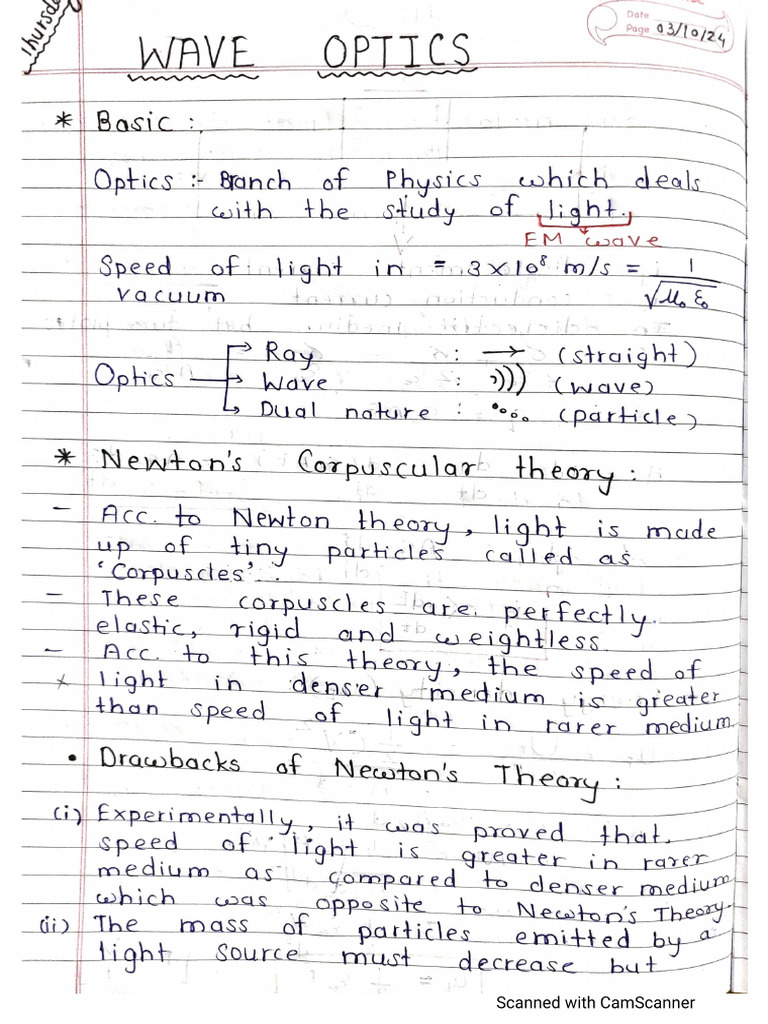 Thursday
Date
Page 03/10/24
WAVE OPTICS
* Basic :
Optics :- Branch of Physics which deals
with the study of light.
EM wave
Speed of light in = 3×10⁸ m/s = 1/√μ₀ε₀
vacuum
Ray : → (straight)
Optics → Wave : )))) (wave)
Dual nature : (particle)
* Newton's Corpuscular theory :
- Acc. to Newton theory, light is made
up of tiny particles called as
'Corpuscles'.
- These corpuscles are perfectly
elastic, rigid and weightless.
- Acc. to this theory, the speed of
* light in denser medium is greater
than speed of light in rarer medium
• Drawbacks of Newton's Theory :
(i) Experimentally, it was proved that
speed of light is greater in rarer
medium as compared to denser medium
which was opposite to Newton's Theory.
(ii) The mass of particles emitted by a
light source must decrease but
Scanned with CamScanner